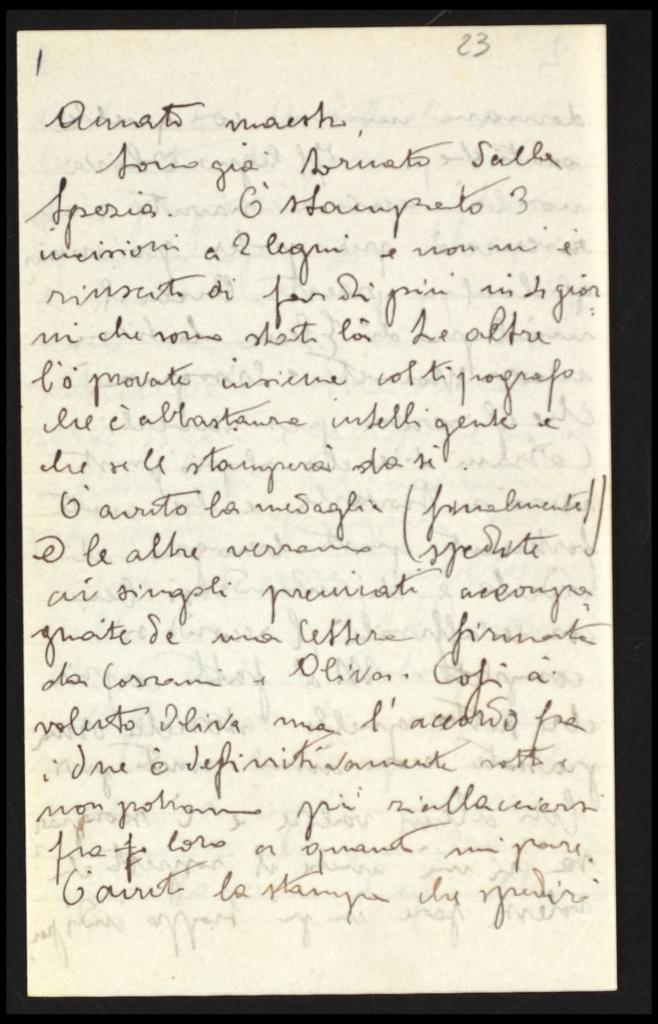 1
23
Amato maestro,
Sono già tornato dalla
Spezia. Ò stampato 3
incisioni a 2 legni e non mi è
riuscito di fardi più in 4 gior=
ni che sono stato là. Le altre
l'ò provate insieme col tipografo
che è abbastanza intelligente e
che se le stamperà da sé.
Ò avuto la medaglia (finalmente!)
e le altre verranno spedite
ai singoli premiati accompa=
gnate da una lettera firmata
da Cozzani e Oliva. Così à
voluto Oliva ma l'accordo fra
i due è definitivamente rotto e
non potranno più riallacciarsi
fra loro a quanto mi pare.
Ò avuto la stampa che spedirò